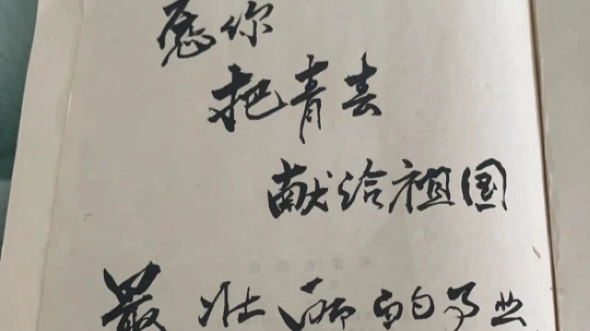 愿你
把青春
献给祖国
最壮丽的事业